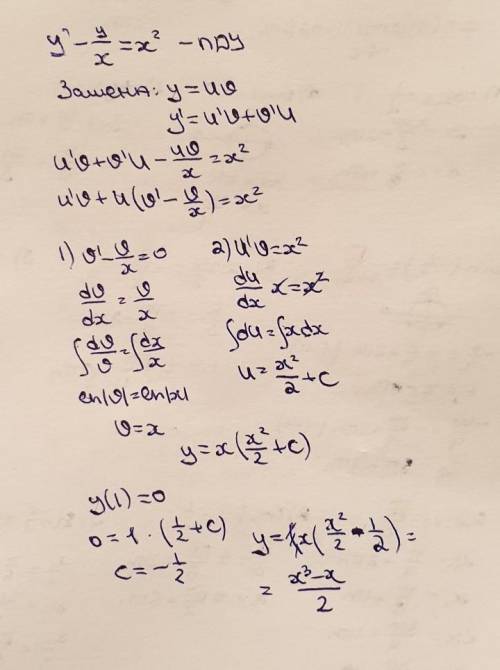 y' - y/x = x² - ЛДУ
Замена: y = uv
y' = u'v + v'u
u'v + v'u - uv/x = x²
u'v + u(v' - v/x) = x²
1) v' - v/x = 0
dv/dx = v/x
∫dv/v = ∫dx/x
ln|v| = ln|x|
v = x
2) u'v = x²
du/dx x = x²
∫du = ∫xdx
u = x²/2 + C
y = x(x²/2 + C)
y(1) = 0
0 = 1 · (1/2 + C)
C = -1/2
y = x(x²/2 - 1/2) =
= x³-x/2